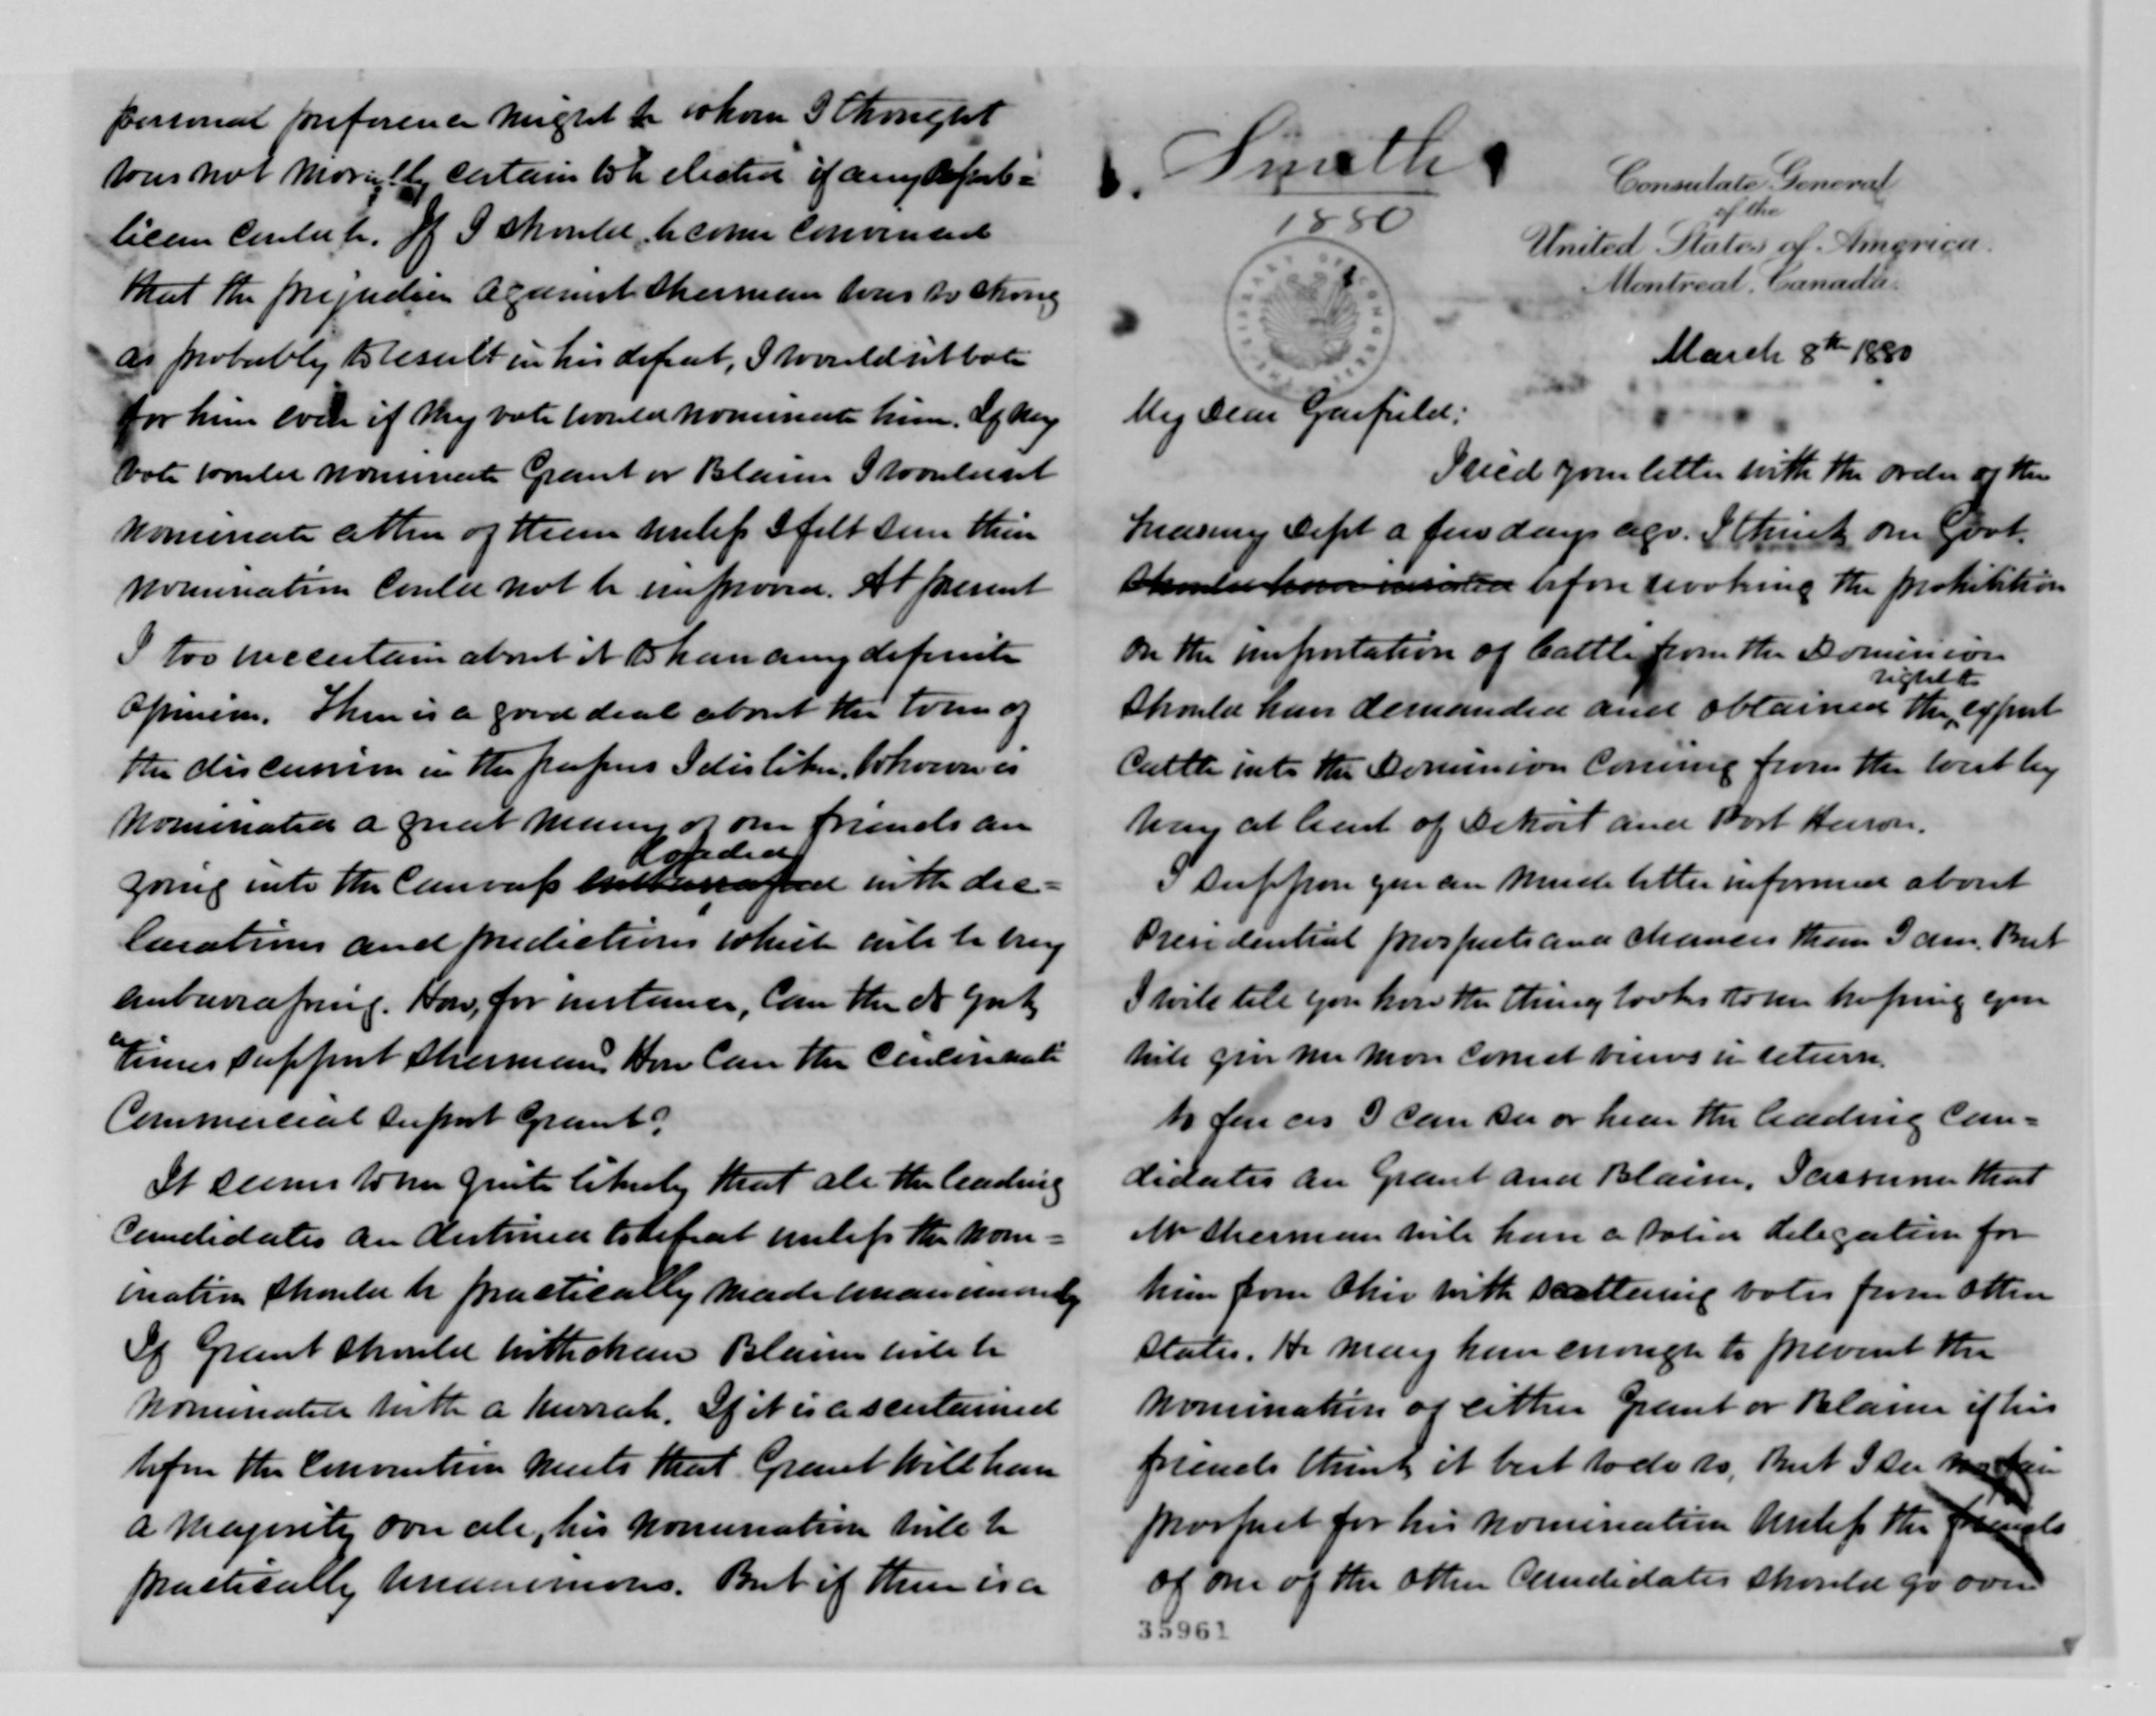 personal preference might be whom I thought
was not morally certain to be elected if any Repub-
lican could be. If I should become convinced
that the prejudice against Sherman was so strong
as probably to result in his defeat, I would not vote
for him even if my vote would nominate him. If my
vote would nominate Grant or Blaine I would not
nominate either of them unless I felt sure their
nomination could not be improved. At present
I too uncertain about it to have any definite
opinion. There is a good deal about the tone of
the discussion in the papers I dislike. Whoever is
nominated a great many of our friends are
loaded
going into the canvass embarrassed with dec-
larations and predictions which will be very
embarrassing. How, for instance, can the N York
"Times support Sherman? How can the Cincinnati
Commercial support Grant?
It seems to me quite likely that all the leading
candidates are destined to defeat unless the nom-
ination should be practically made unanimously
If Grant should withdraw Blaine will be
nominated with a hurrah. If it is ascertained
before the convention meets that Grant will have
a majority over all, his nomination will be
practically unanimous. But if there is a
Smith
1880
LIBRARY OF CONGRESS
Consulate General
of the
United States of America.
Montreal, Canada.
March 8th 1880
My Dear Garfield:
I recd your letter with the order of the
Treasury Dept a few days ago. I think our Govt.
should have insisted before revoking the prohibition
on the importation of cattle from the Dominion
right to
should have demanded and obtained the export
cattle into the Dominion coming from the west by
way at least of Detroit and Port Huron.
I suppose you are much better informed about
Presidential prospects and chances than I am. But
I will tell you how the thing looks to me hoping you
will give me more correct views in return.
So far as I can see or hear the leading can-
didates are Grant and Blaine. I assume that
Mr Sherman will have a solid delegation for
him from Ohio with scattering votes from other
States. He may have enough to prevent the
nomination of either Grant or Blaine if his
friends think it best to do so. But I see no fair
prospect for his nomination unless the friends
of one of the other candidates should go over
35961